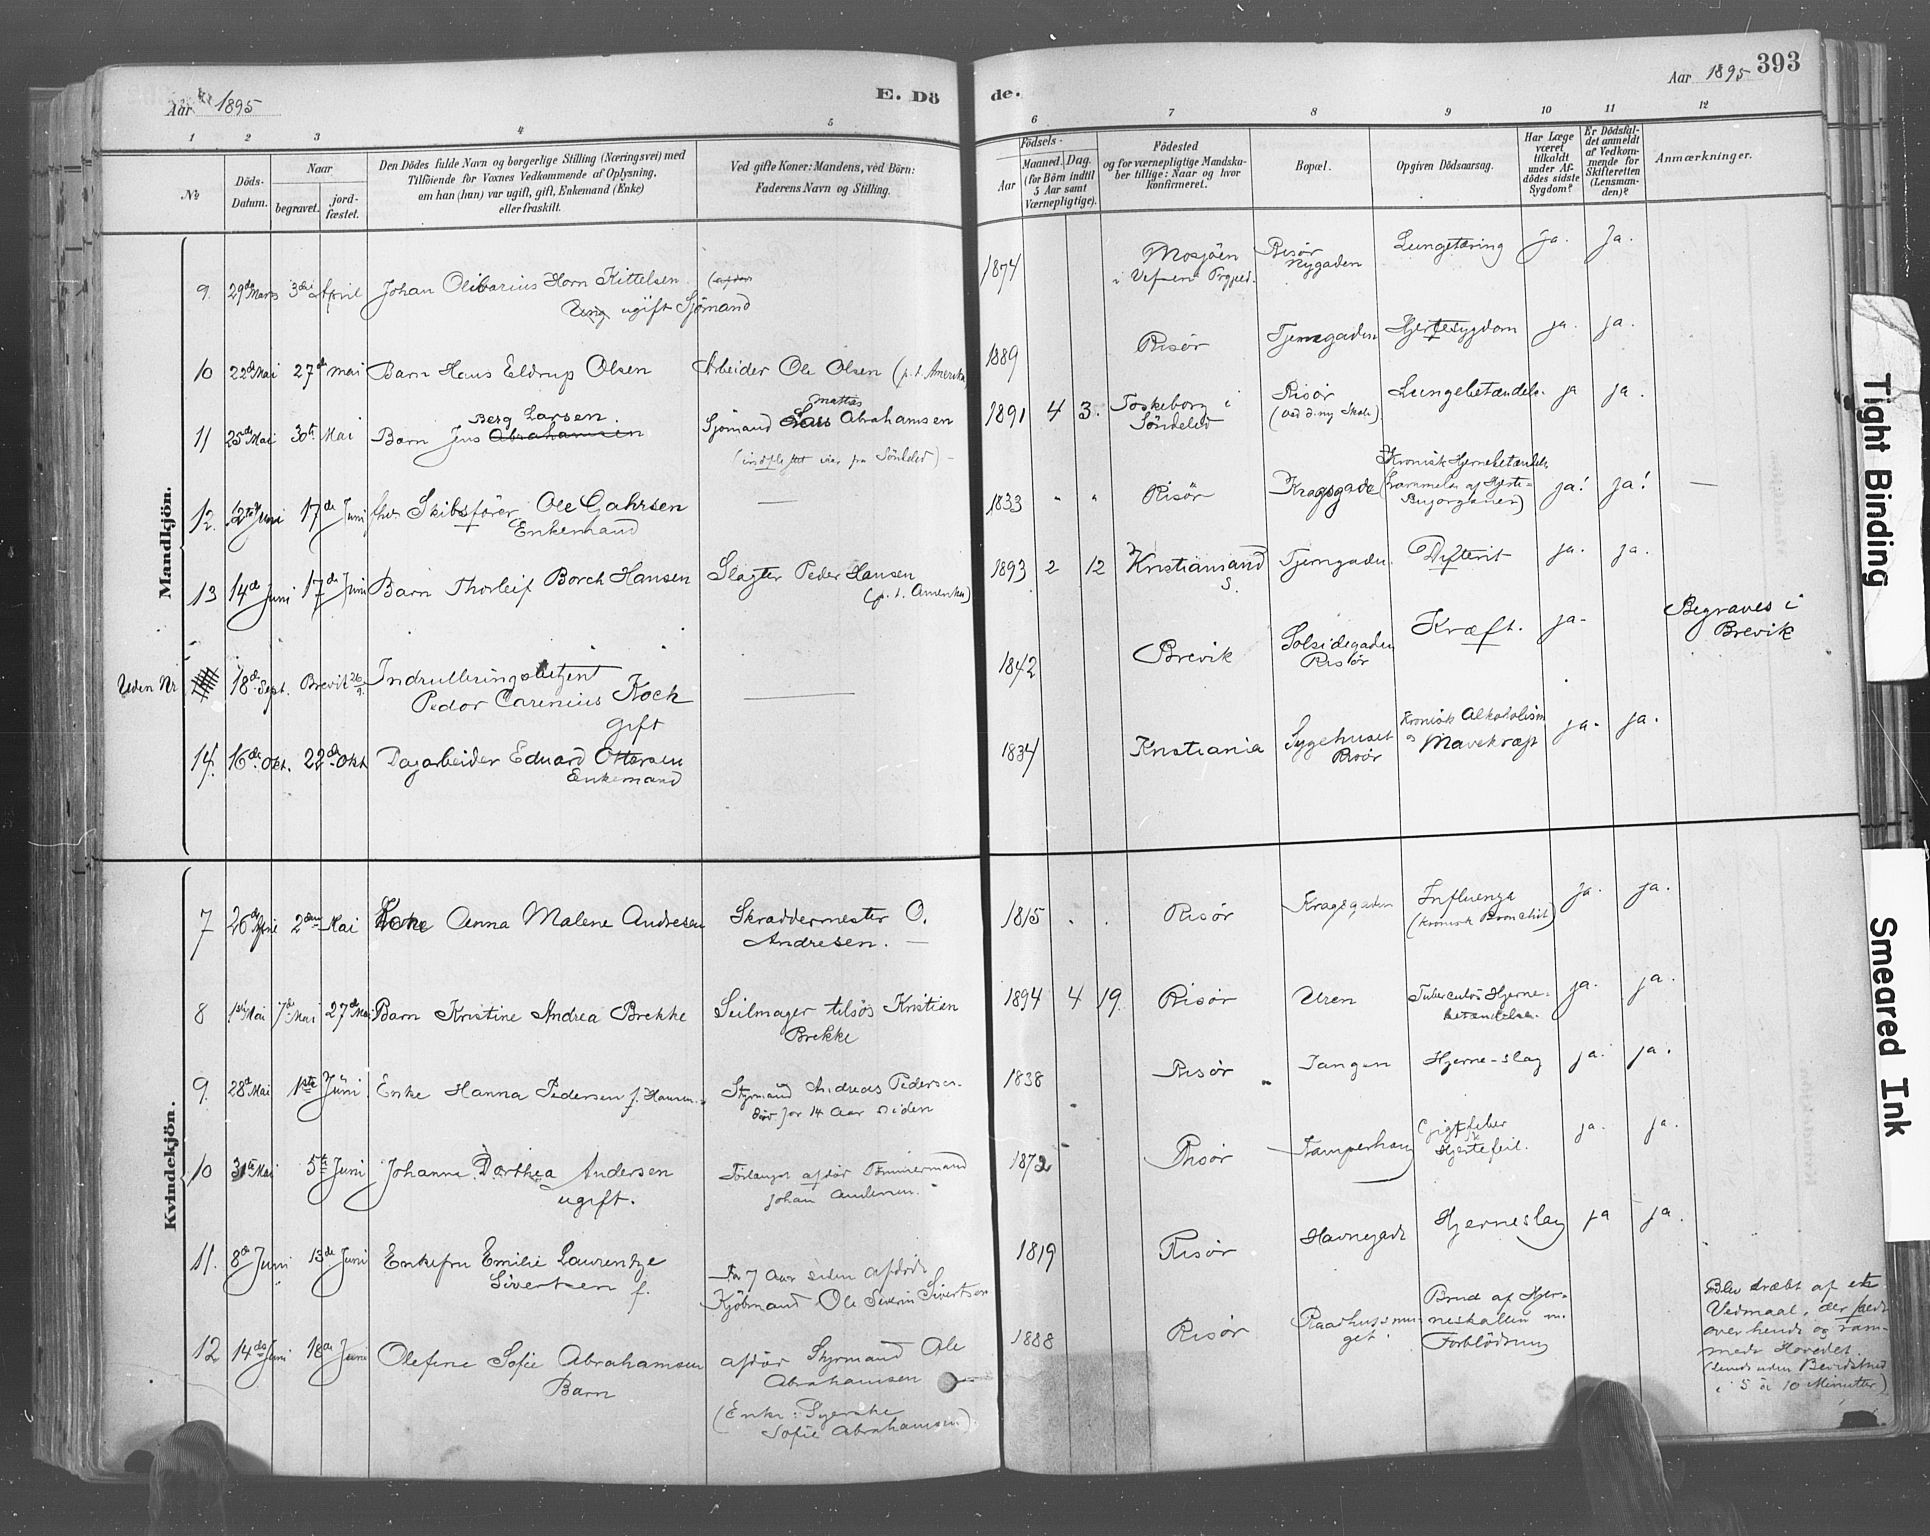 Aar 1895
E. Dö
de.
Aar 1895 393
1 2 3 4 5
6 7 8 9 10 11 12
No
Döds-
Datum.
Naar
begravet.
jord-
fæstet.
Den Dödes fulde Navn og borgerlige Stilling (Næringsvei) med
Tilföiende for Voxnes Vedkommende af Oplysning,
om han (hun) var ugift, gift, Enkemand (Enke)
eller fraskilt.
Ved gifte Koner: Mandens, ved Börn:
Faderens Navn og Stilling.
Födsels-
Aar
Maaned. Dag.
(for Börn indtil
5 Aar samt
Værnepligtige).
Födested
og for værnepligtige Mandska-
ber tillige: Naar og hvor
konfirmeret.
Bopæl.
Opgiven Dödsaarsag.
Har Læge
været
tilkaldt
under Af-
dödes sidste
Sygdom?
Er Dödsfal-
det anmeldt
af Vedkom-
mende for
Skifteretten
(Lensman-
den)?
Anmærkninger.
Mandkjön.
9. 29de Marts 3die April Johan Olibarius Horn Kittelsen
ugift Sjömand
1874 Mosjöen
i Vefsen
Risör
Nygaden
Lungetæring ja. Ja.
10 22de Mai 27de Mai Barn Hans Eldrup Olsen Arbeider Ole Olsen (p. t. Amerika)
1889 Risör Tjerngaden Hjertesygdom ja. ja.
11 25de Mai 30te Mai Barn Jens Abrahamsen
Berg Larsen.
Sjömand Lars Abrahamsen
Mattas
(indflyttet var fra Söndeled)
1891 4 3. Toskeborg i
Söndeled
Risör
(ved d. ny Skole)
Lungebetændels. ja ja.
12. 12te Juni 17de Juni fhv. Skibsförer Ole Gahrsen
Enkemand
1833 " " Risör Kragsgade Kronisk Hjernebetændels
ja! ja! —
13 14de Juni 17de Juni Barn Thorleif Borch Hansen Slagter Peder Hansen
(p. t. Amerika)
1893 2 12 Kristiansand
S.
Tjerngaden. Difterit ja. ja.
Uden Nr. 18de Sept. Brevik 26/9.
Peder Carenius Koch
gift
1842 Brevik Solsidegaden
Risör
Kræft. ja. Begraves i
Brevik
14. 16de Okt. 22de Okt Dagarbeider Edvard Ottersen
Enkemand
1834 Kristiania Sygehuset
Risör
Kronisk Alkoholism
og Mavekræft ja. ja.
Kvindekjön.
7 26de April 2den Mai Kone Anna Malene Andresen Skræddermester O.
Andresen. —
1815 . . Risör Kragsgaden Influenza
(kronisk Bronchit)
ja. ja.
8 1ste Mai 7de Mai 27de Mai Barn Kristine Andrea Brekke Seilmager tilsös Kristian
Brekke
1894 4 19. Risör Uren Tuberculös Hjerne-
betændelse. ja. ja.
9. 28de Mai 1ste Juni Enke Hanna Pedersen f. Hansen Styrmand Andreas Pedersen
död for 14 Aar siden
1838 Risör Tangen Hjerne-slag ja. ja.
10 31te Mai 5te Juni Johanne Dorthea Andersen
ugift.
Forlængst afdör Tömmermand
Johan Andersen.
1872 Risör Kamperhau Gigtfeber
Hjertefeil. ja. ja.
11. 8de Juni 13de Juni Enkefru Emilie Laurentze
Sivertsen f.
For 7 Aar siden afdöde
Kjöbmand Ole Severin Sivertsen
1819 Risör Havnegade Hjerneslag ja ja.
12 14de Juni 18de Juni Olefine Sofie Abrahamsen
Barn
afdör Styrmand Ole
Abrahamsen
(Enke: Syerske
Sofie Abrahamsen)
1888 Risör Raadhussmu-
get
Brud af Hjer-
neskallen m.
Forblödning
Blev dræbt af en
Vedmaal, der faldt
over hende og ram-
mede Hovedet.
(levede uden Bevidsthed
i 5 à 10 Minutter)
Tight Binding
Smeared Ink